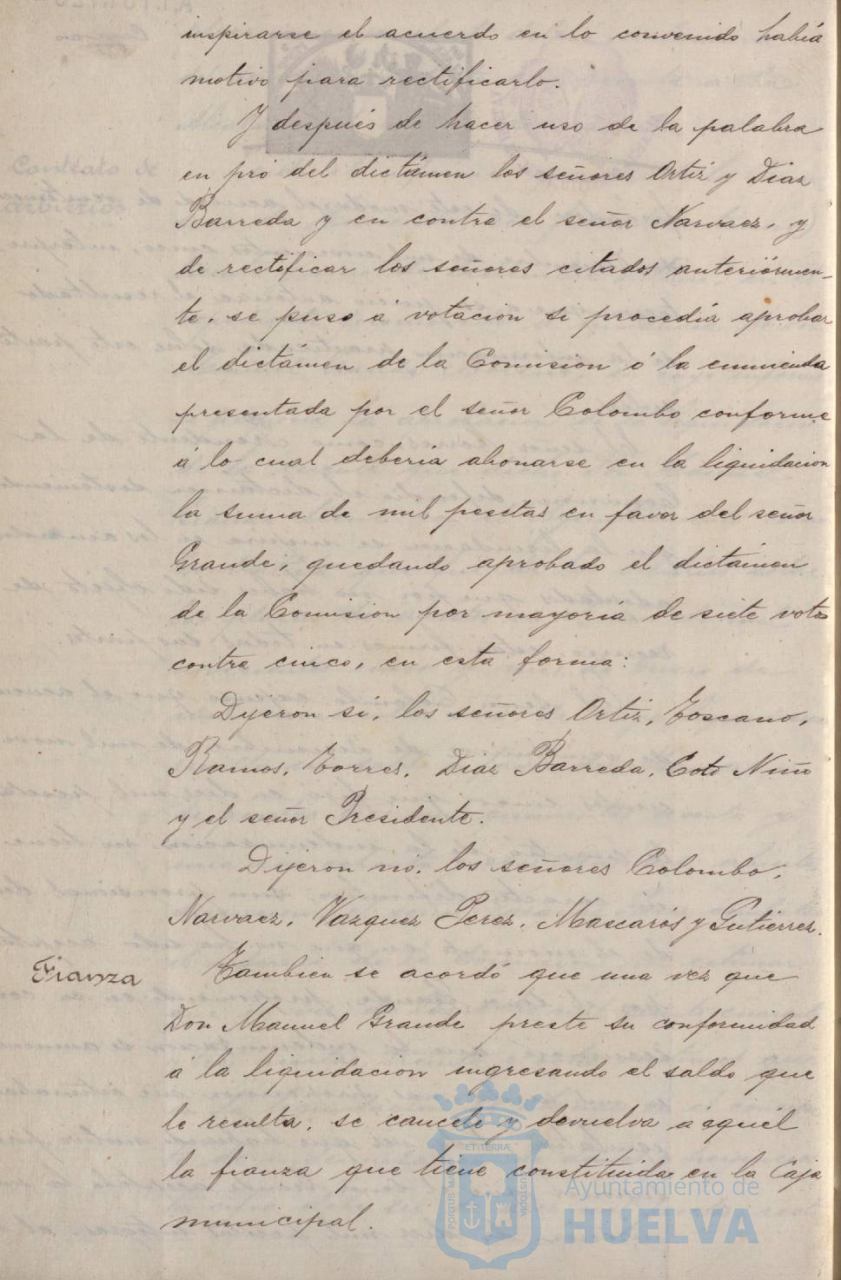 inspirarse el acuerdo en lo convenido había
motivo para rectificarlo.
Y después de hacer uso de la palabra
en pró del dictámen los señores Ortiz y Diaz
Barreda y en contra el señor Narvaez, y
de rectificar los señores citados anteriormen-
te, se puso á votacion si procedia aprobar
el dictámen de la Comision ó la enmienda
presentada por el señor Colombo conforme
á lo cual deberia abonarse en la liquidacion
la suma de mil pesetas en favor del señor
Grande; quedando aprobado el dictámen
de la Comision por mayoria de siete votos
contra cinco, en esta forma:
Dijeron sí, los señores Ortiz, Toscano,
Ramos, Torres, Diaz Barreda, Coto Niño
y el señor Presidente.
Dijeron no, los señores Colombo,
Narvaez, Vazquez Perez, Mascarós y Gutierrez.
Fianza
Tambien se acordó que una vez que
Don Manuel Grande preste su conformidad
á la liquidacion ingresando el saldo que
le resulta, se cancele y devuelva á aquél
la fianza que tiene constituida en la Caja
municipal.
Ayuntamiento de
HUELVA